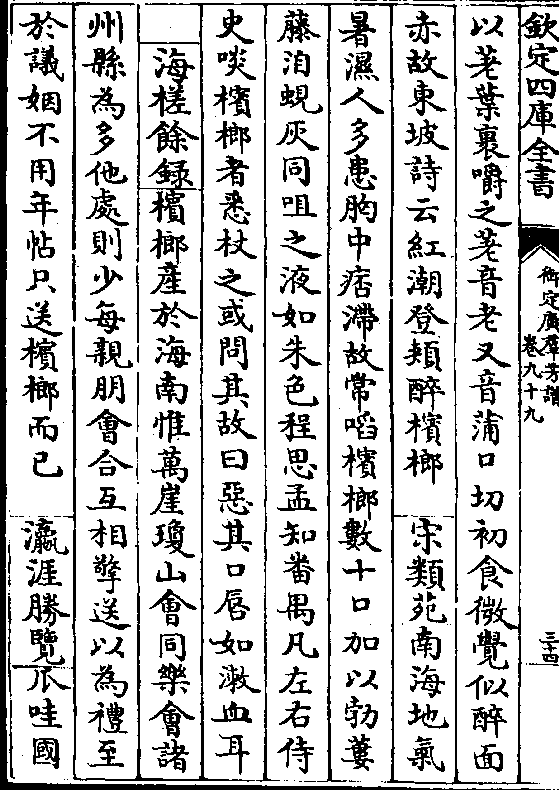 欽定四庫全書
御定廣羣芳譜
卷九十九
三十四
以荖葉裹嚼之荖音老又音蒲口切初食微覺似醉面
赤故東坡詩云紅潮登頰醉檳榔 宋類苑南海地氣
暑濕人多患胸中痞滯故常啗檳榔數十口加以勃蔞
藤洎蜆灰同咀之液如朱色程思孟知畨禺凡左右侍
史啖檳榔者悉杖之或問其故曰惡其口唇如潄血耳
海槎餘録檳榔產於海南惟萬崖瓊山會同樂會諸
州縣為多他處則少每親朋會合互相擎送以為禮至
於議姻不用年帖只送檳榔而已 瀛涯勝覽爪哇國